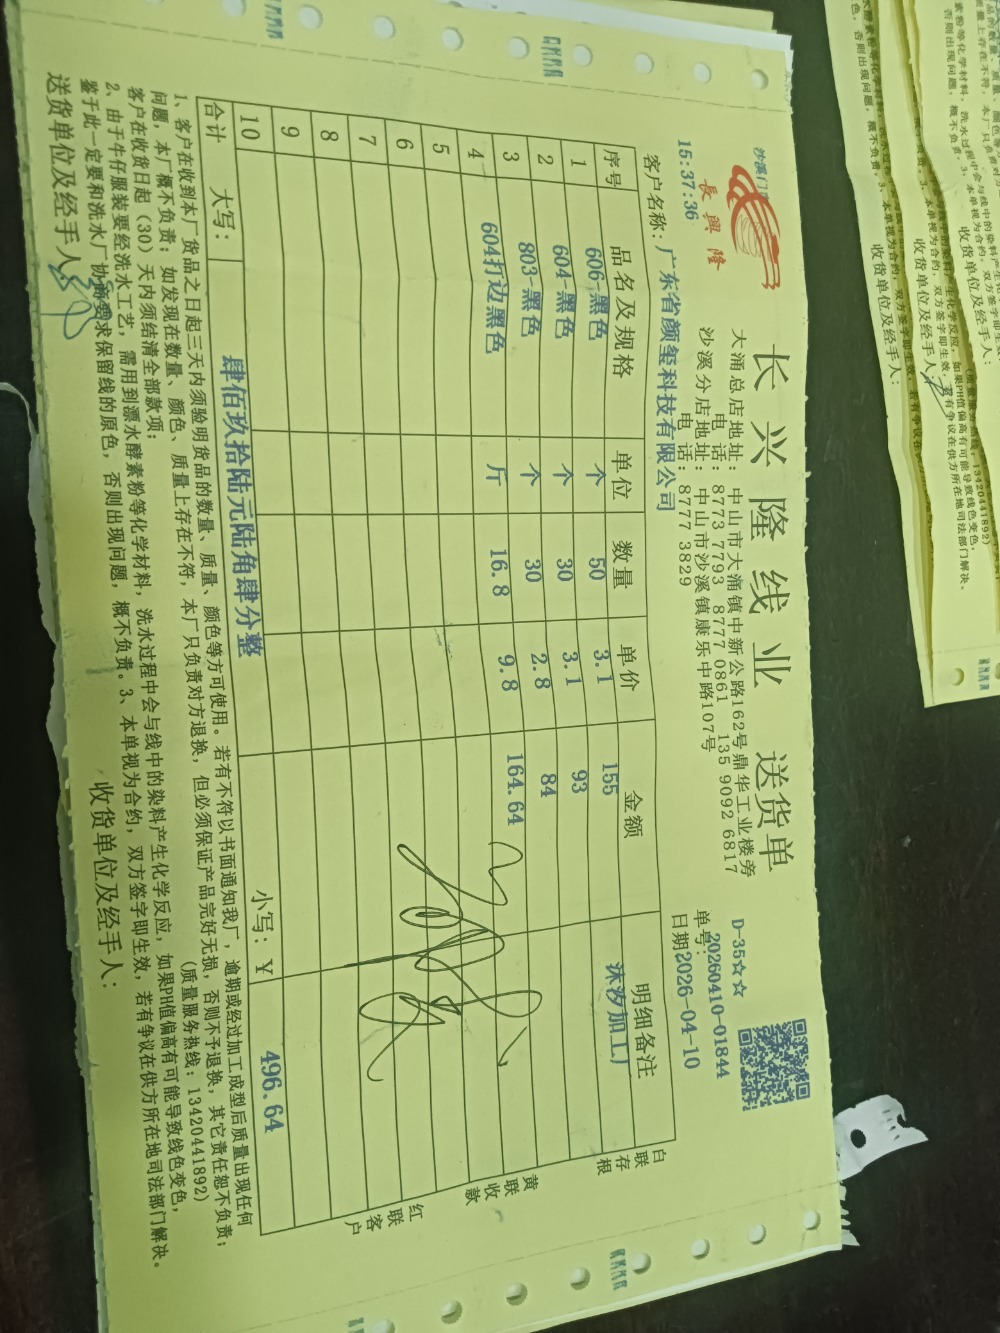 沙溪门
長興隆
长兴隆线业 送货单
大涌总店地址：中山市大涌镇中新公路162号鼎华工业楼旁
电 话：8773 7793 8777 0861 135 9092 6817
沙溪分店地址：中山市沙溪镇康乐中路107号
电 话：8777 3829
D-35☆☆
单号：20260410-01844
15:37:36
日期2026-04-10
客户名称：广东省颜玺科技有限公司
序号 品名及规格 单位 数量 单价 金额 明细备注
1 606-黑色 个 50 3.1 155 沫汐加工厂
2 604-黑色 个 30 3.1 93
3 803-黑色 个 30 2.8 84
4 604打边黑色 斤 16.8 9.8 164.64
5
6
7
8
9
10
合计 大写：肆佰玖拾陆元陆角肆分整 小写：Y 496.64
白联存根
黄联收款
红联客户
1、客户在收到本厂货品之日起三天内须验明货品的数量、质量、颜色等方可使用。若有不符以书面通知我厂，逾期或经过加工成型后质量出现任何
问题，本厂概不负责；如发现在数量、颜色、质量上存在不符，本厂只负责对方退换，但必须保证产品完好无损，否则不予退换，其它责任恕不负责；
客户在收货日起（30）天内须结清全部款项； （质量服务热线：13420441892）
2、由于牛仔服装要经洗水工艺，需用到漂水酵素粉等化学材料，洗水过程中会与线中的染料产生化学反应，如果PH值偏高有可能导致线色变色，
鉴于此一定要和洗水厂协商要求保留线的原色，否则出现问题，概不负责。3、本单视为合约，双方签字即生效，若有争议在供方所在地司法部门解决。
送货单位及经手人： 收货单位及经手人：
收货单位及经手人：
收货单位及经手人：
收货单位及经手人：